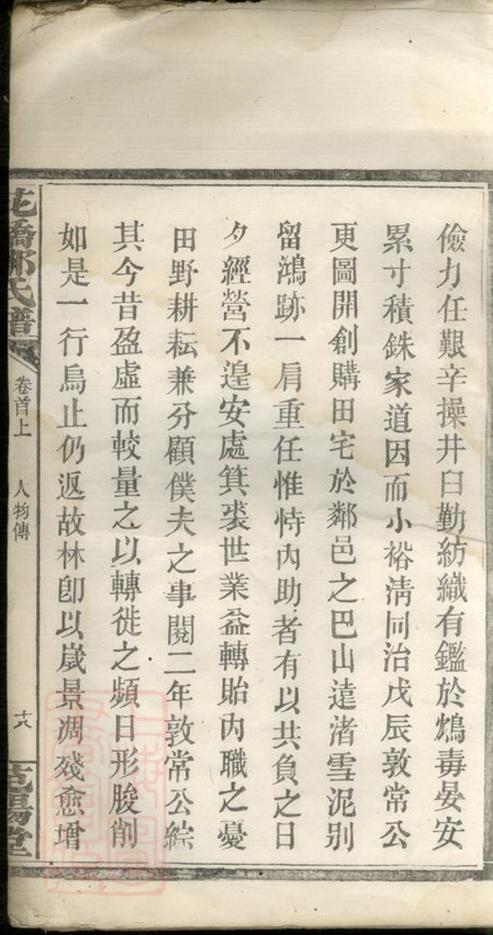 儉力任艱辛操井臼勤紡織有鑑於鴆毒晏安
累寸積銖家道因而小裕淸同治戊辰敦常公
更圖開創購田宅於鄰邑之巴山遠渚雪泥別
留鴻跡一肩重任惟恃內助者有以共負之日
夕經營不遑安處箕裘世業益轉貽內職之憂
田野耕耘兼分顧僕夫之事閱二年敦常公綜
其今昔盈虛而較量之以轉徙之頻日形朘削
如是一行烏止仍返故林卽以歲景凋殘愈增
花橋鄭氏譜
卷首上
人物傳
十八